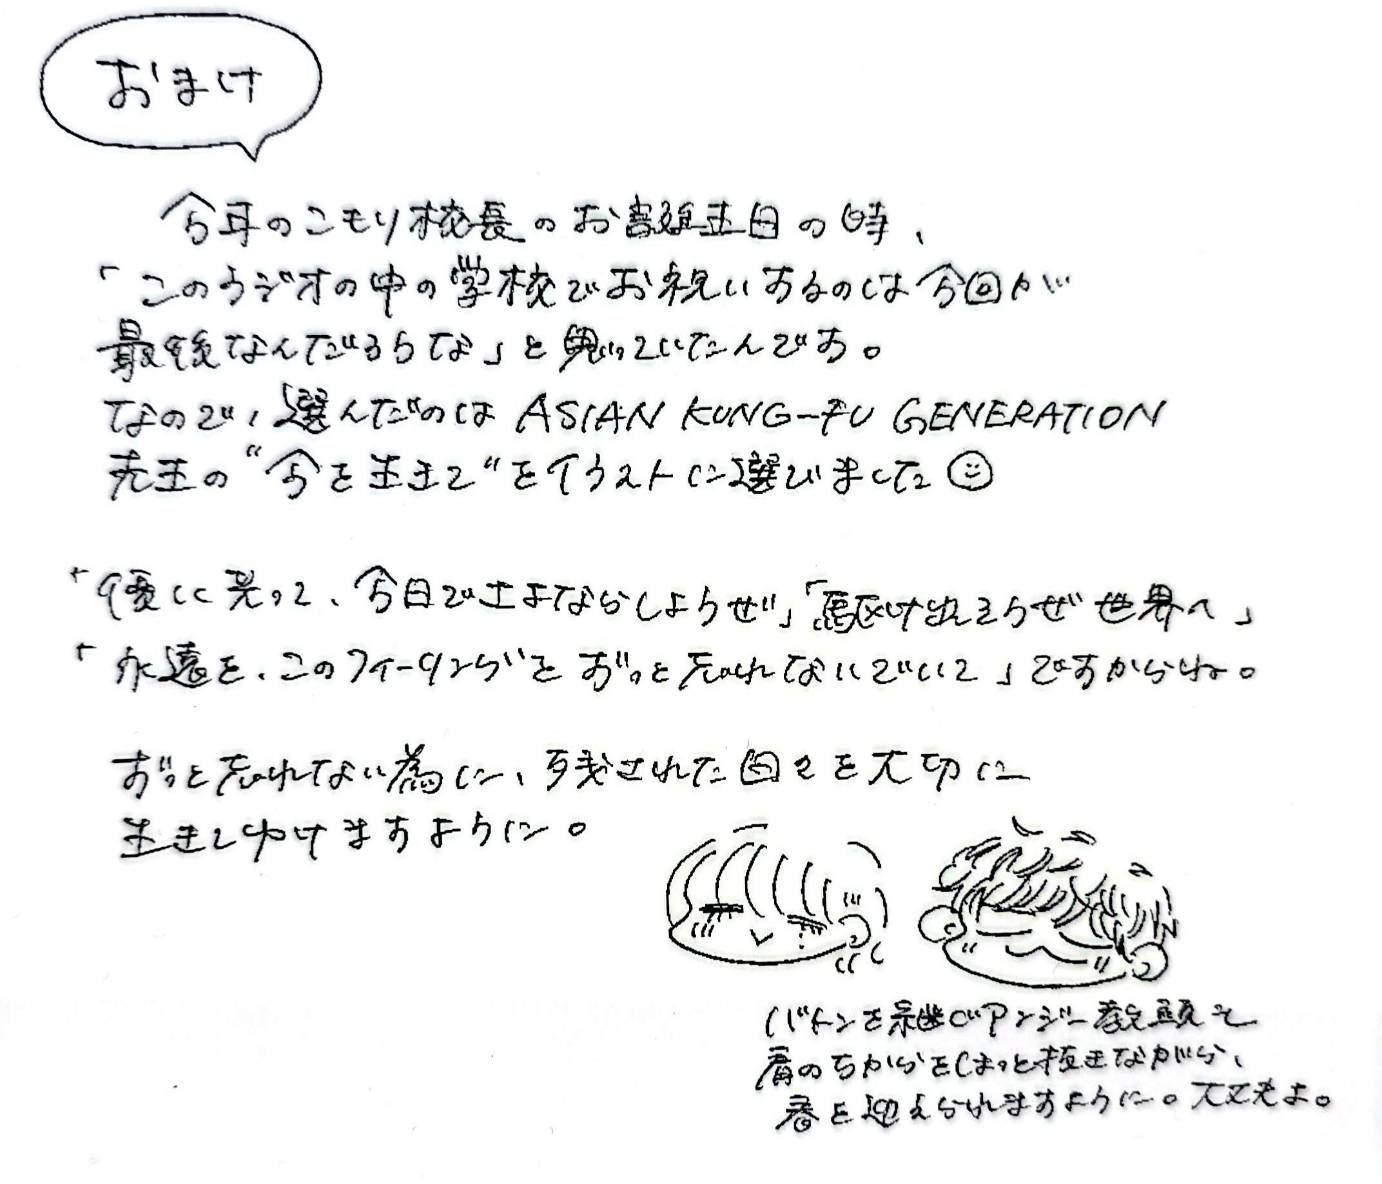 おまけ
今年のこもり校長のお誕生日の時、
「このラジオの中の学校でお祝いするのは今回が
最後なんだろうな」と思っていたんです。
なので、選んだのは ASIAN KUNG-FU GENERATION
先生の“今を生きて”をイラストに選びました☺
「優しく光って、今日でさよならしようぜ」「駆け出そうぜ世界へ」
「永遠を、このフィーリングをずっと忘れないでいて」ですからね。
ずっと忘れない為に、残された日々を大切に
生きしゆけますように。
バトンを継ぐアンジー教頭も
肩のちからをほっと抜きながら、
春を迎えられますように。大丈夫よ。